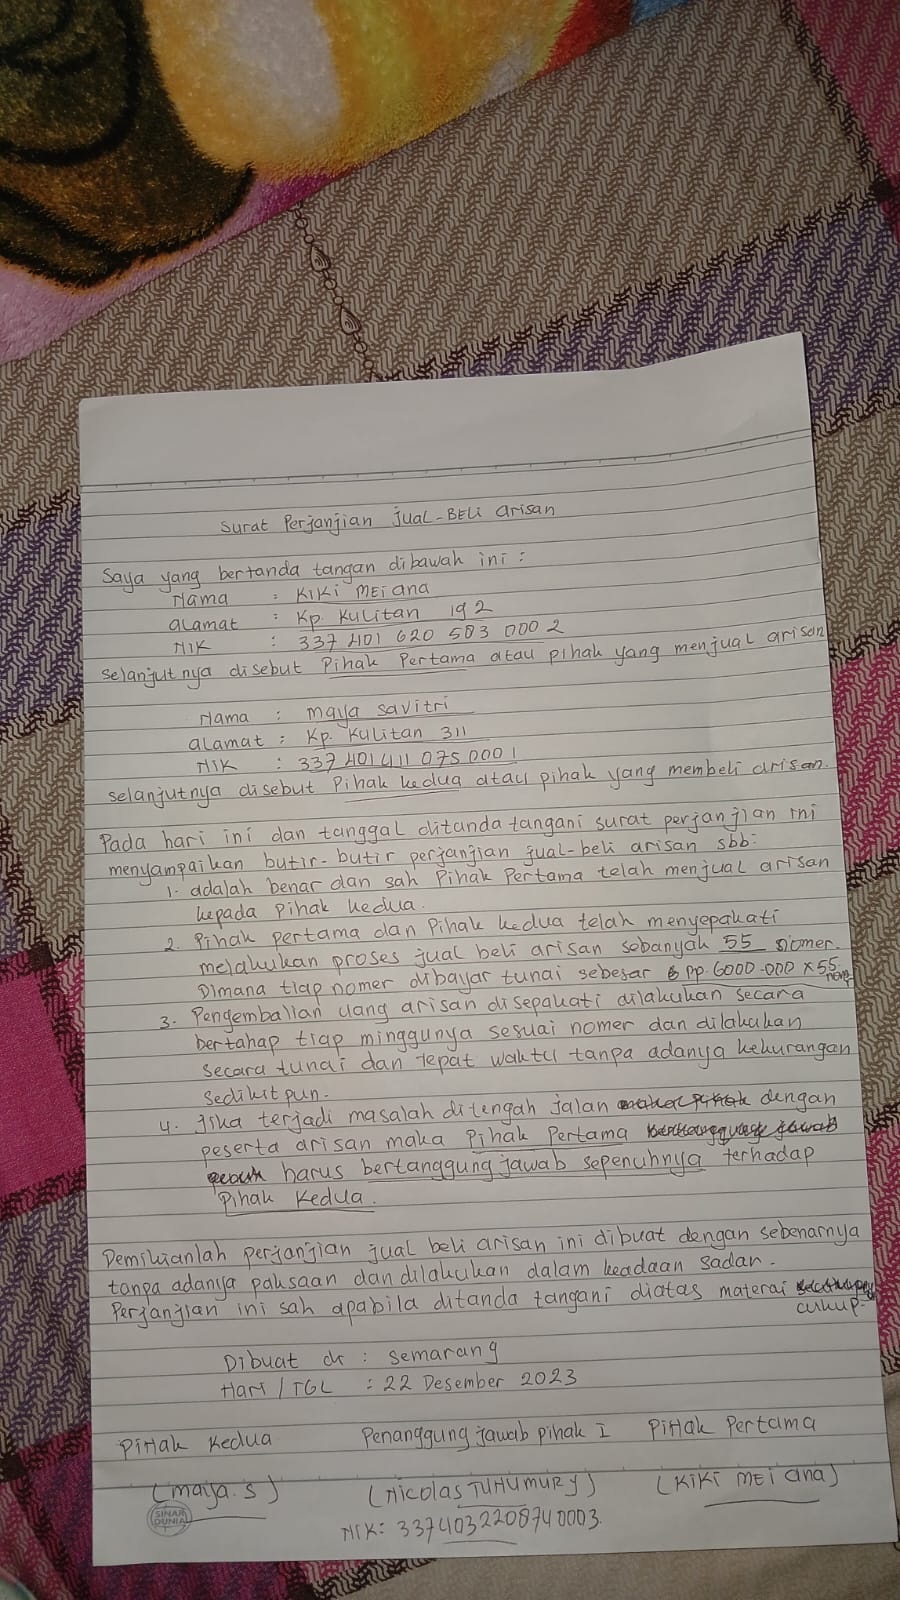 Surat Perjanjian Jual-Beli arisan
Saya yang bertanda tangan dibawah ini :
Nama : KIKI MEIANA
alamat : Kp. Kulitan 192
NIK : 337 401 620 583 000 2
selanjutnya disebut Pihak Pertama atau pihak yang menjual arisan
Nama : maya savitri
alamat : Kp. Kulitan 311
NIK : 337 401 411 075 000 1
selanjutnya disebut Pihak kedua atau pihak yang membeli arisan.
Pada hari ini dan tanggal ditanda tangani surat perjanjian ini
menyampaikan butir-butir perjanjian jual-beli arisan sbb:
1. adalah benar dan sah Pihak Pertama telah menjual arisan
kepada Pihak kedua.
2. Pihak pertama dan Pihak kedua telah menyepakati
melakukan proses jual beli arisan sebanyak 55 nomer.
Dimana tiap nomer dibayar tunai sebesar Rp. 6000.000 x 55
3. Pengembalian uang arisan disepakati dilakukan secara
bertahap tiap minggunya sesuai nomer dan dilakukan
secara tunai dan tepat waktu tanpa adanya kekurangan
sedikitpun.
4. Jika terjadi masalah ditengah jalan dengan
peserta arisan maka Pihak Pertama
harus bertanggung jawab sepenuhnya terhadap
Pihak Kedua.
Demikianlah perjanjian jual beli arisan ini dibuat dengan sebenarnya
tanpa adanya paksaan dan dilakukan dalam keadaan sadar.
Perjanjian ini sah apabila ditanda tangani diatas materai
cukup.
Dibuat di : Semarang
Hari / TGL : 22 Desember 2023
Pihak Kedua Penanggung jawab pihak I Pihak Pertama
(maya.s) (Nicolas TUHUMURY) (KIKI MEIANA)
NIK: 3374032208740003.
SINAR
DUNIA